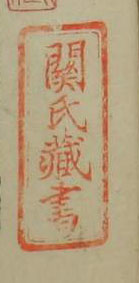 關氏藏書